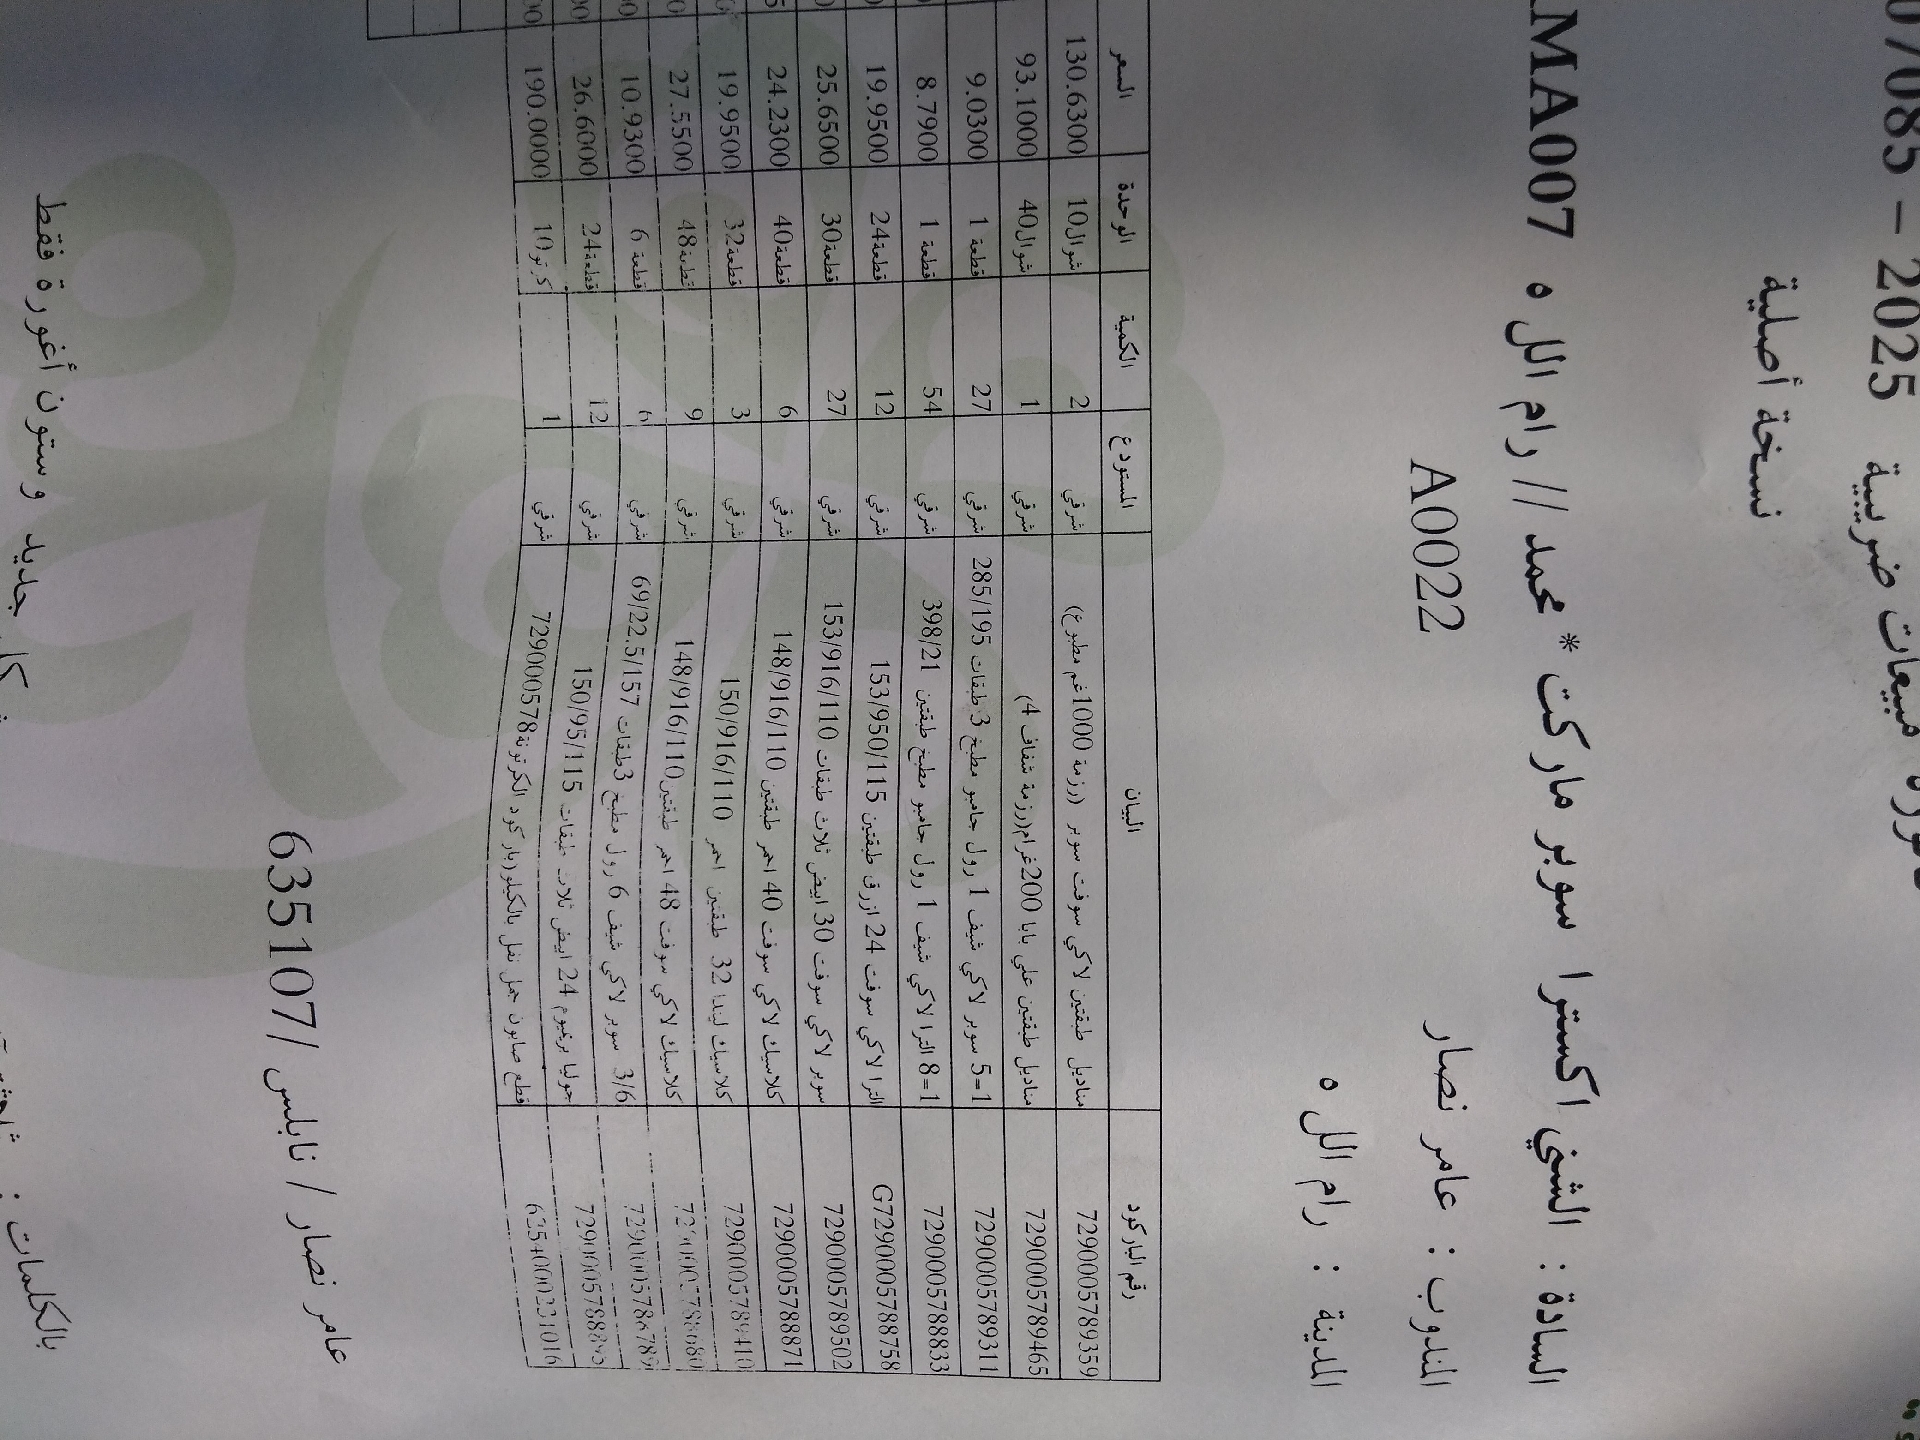 07085 - 2025
مبيعات ضريبية
نسخة أصلية
السادة : الشني اكسترا سوبر ماركت * محمد // رام الله MA007
المندوب : عامر نصار A0022
المدينة : رام الله
رقم الباركود البيان المستودع الكمية الوحدة السعر
7290005789359 مناديل طبقتين لاكي سوفت سوبر (رزمة 1000غم مطبوع) شرقي 2 شوال10 130.6300
7290005789465 مناديل طبقتين علي بابا 200غرام(رزمة شفاف 4) شرقي 1 شوال40 93.1000
7290005789311 5=1 سوبر لاكي شيف 1 رول جامبو مطبخ 3 طبقات 285/195 شرقي 27 قطعة 1 9.0300
7290005788833 8=1 الترا لاكي شيف 1 رول جامبو مطبخ طبقتين 398/21 شرقي 54 قطعة 1 8.7900
G7290005788758 الترا لاكي سوفت 24 ازرق طبقتين 153/950/115 شرقي 12 قطعة24 19.9500
7290005789502 سوبر لاكي سوفت 30 ابيض ثلاث طبقات 153/916/110 شرقي 27 قطعة30 25.6500
7290005788871 كلاسيك لاكي سوفت 40 احمر طبقتين 148/916/110 شرقي 6 قطعة40 24.2300
7290005789410 كلاسيك ليندا 32 طبقتين احمر 150/916/110 شرقي 3 قطعة32 19.9500
كلاسيك لاكي سوفت 48 احمر طبقتين148/916/110 شرقي 9 قطعة48 27.5500
3/6 سوبر لاكي شيف 6 رول مطبخ 3طبقات 69/22.5/157 شرقي 6 قطعة 6 10.9300
جوليا بريميوم 24 ابيض ثلاث طبقات 150/95/115 شرقي 12 قطعة24 26.6000
قطع صابون جمل نفل بالكيلو(باركود الكرتونة729000578 شرقي 1 كرتو10 190.0000
عامر نصار / نابلس /635107
بالكلمات : جديد وستون أغورة فقط